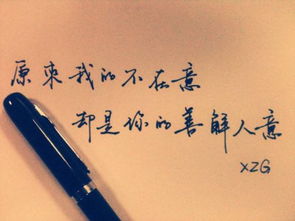 原來我的不在意
却是你的善解人意
XZG